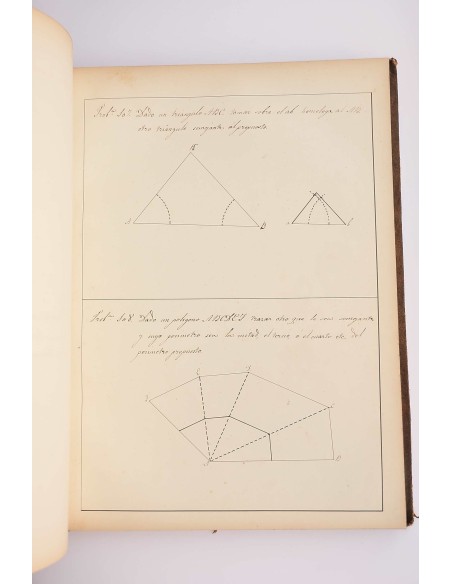 Dado un triangulo ABC trazar sobre el ab homologo al AB
otro triángulo semejante al propuesto.
A
B
a
Dado un poligono trazar otro que le sea semejante
y cuyo perimetro sea la mitad el tercio o el cuarto etc. del
perimetro propuesto.
A
B
C